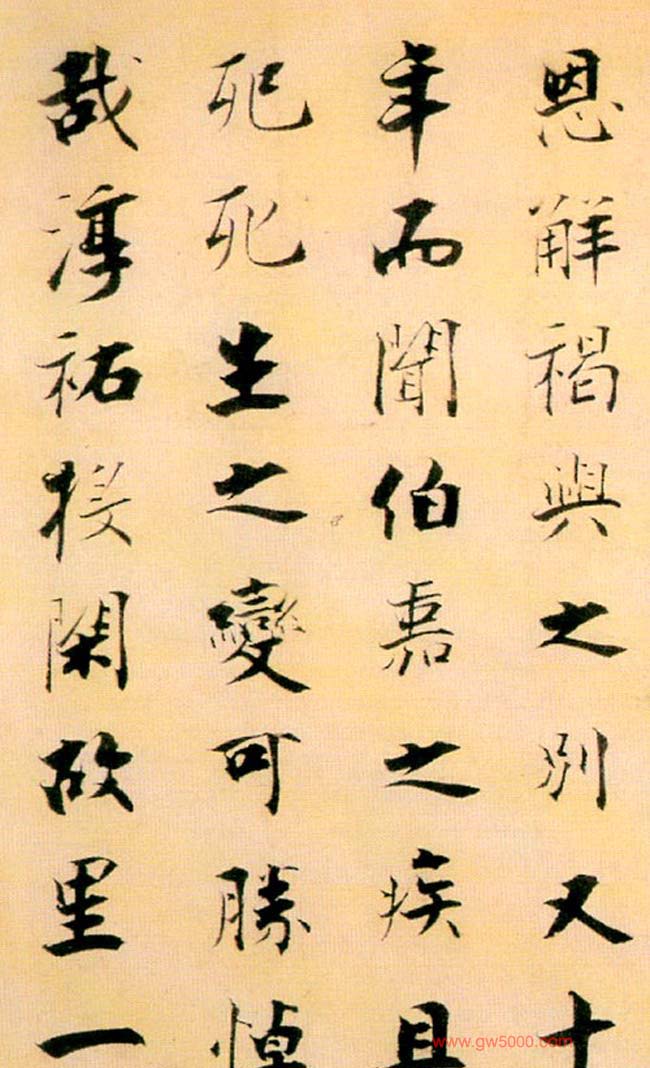 恩解褐與之別又十
年而聞伯嘉之疾且
死死生之變可勝悼
哉淳祐投閑故里一
www.gw5000.com